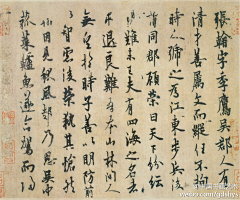 張翰字季鷹吳郡人有
清才善屬文而縱任不拘
時人號之為江東步兵後
謂同郡顧榮曰天下紛紜
禍難未已夫有四海之名者求
退良難吾本山林間人
無望於時子善以明防前
以智慮後榮執其愴然
翰因見秋風起乃思吳中
菰菜鱸魚遂命駕而歸